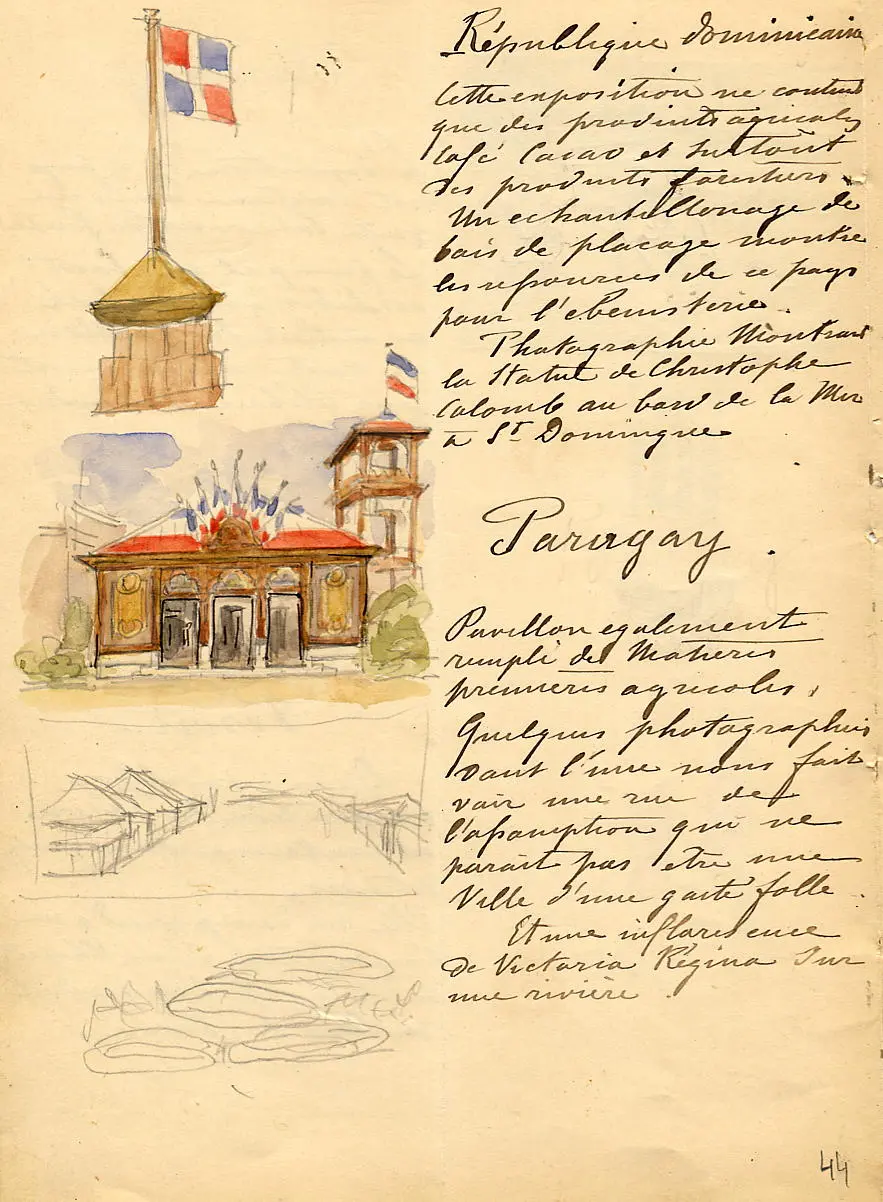 République dominicaine
Cette exposition ne contient
que des produits agricoles
Café Cacao et surtout
des produits forestiers.
Un echantillonage de
bois de placage montre
les ressources de ce pays
pour l'ebenisterie.
Photographie Montrant
la Statue de Christophe
Colomb au bord de la Mer
a St Domingue
Paragay.
Pavillon egalement
rempli de Matieres
premieres agricoles,
Quelques photographies
dont l'une nous fait
voir une rue de
l'assomption qui ne
parait pas etre une
Ville d'une gaité folle.
Et une inflorescence
de Victoria Régina sur
une rivière.
44